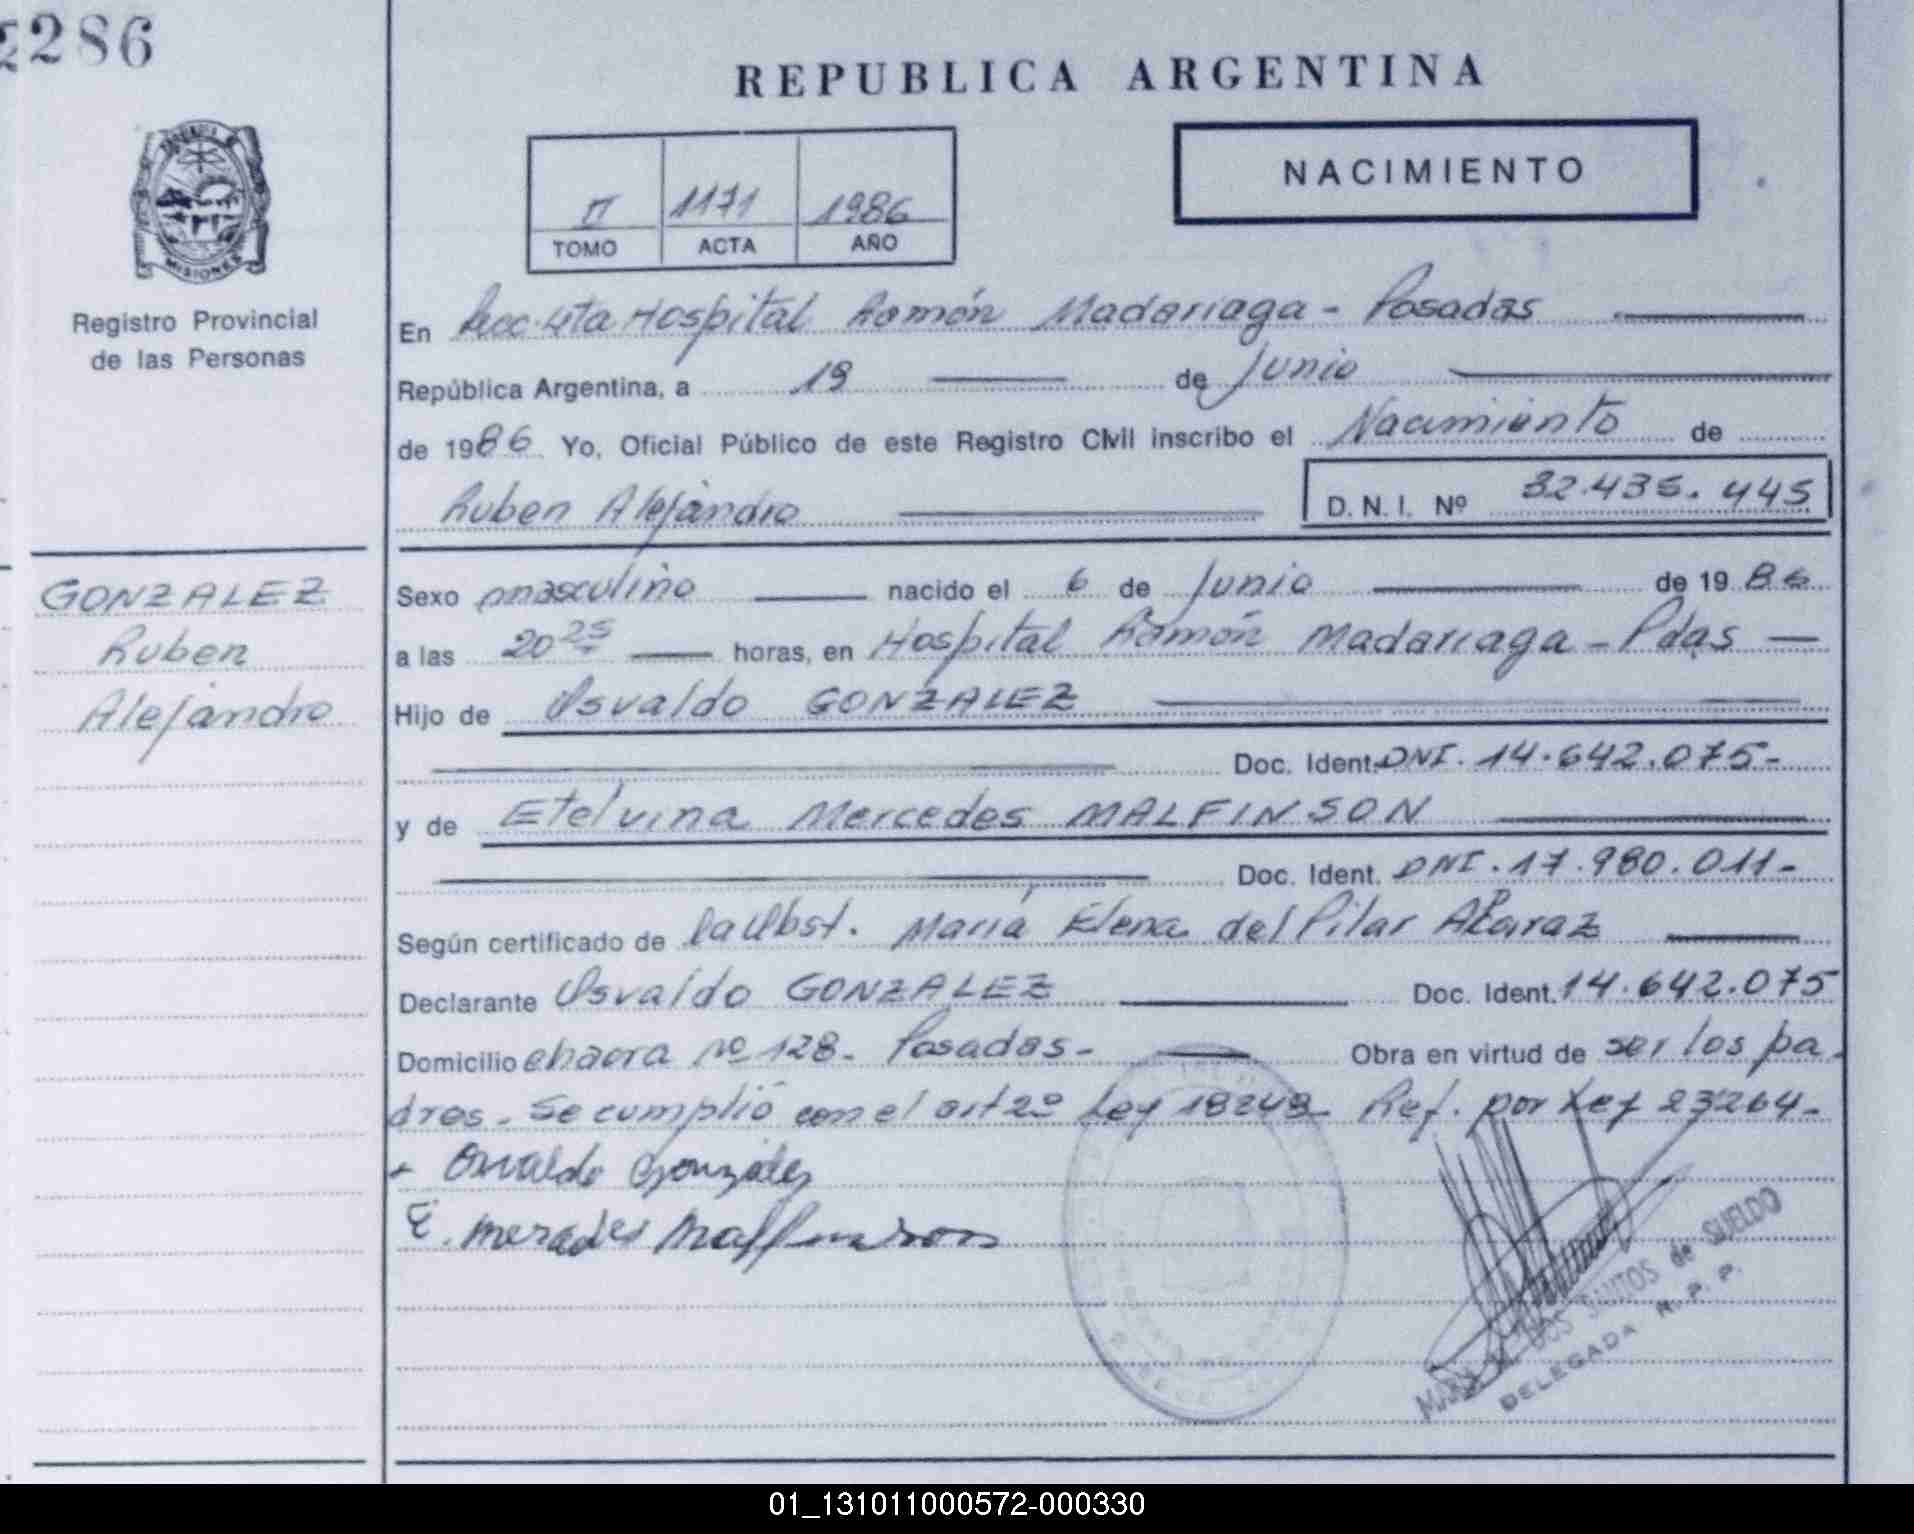 2286
REPUBLICA ARGENTINA
II 1171 1986
TOMO ACTA AÑO
NACIMIENTO
MISIONES
Registro Provincial
de las Personas
En Secc. 4ta Hospital Ramón Madariaga - Posadas
República Argentina, a 19 de Junio
de 1986 Yo, Oficial Público de este Registro Civil inscribo el Nacimiento de
Ruben Alejandro D. N. I. Nº 32.435.445
GONZALEZ
Ruben
Alejandro
Sexo masculino nacido el 6 de Junio de 1986
a las 20 25 horas, en Hospital Ramón Madariaga - Pdas
Hijo de Osvaldo GONZALEZ
Doc. Ident. DNI. 14.642.075-
y de Etelvina Mercedes MALFINSON
Doc. Ident. DNI. 17.980.011-
Según certificado de la Obst. María Elena del Pilar
Declarante Osvaldo GONZALEZ Doc. Ident. 14.642.075
Domicilio chacra nº 128. Posadas- Obra en virtud de ser los pa-
dres. Se cumplió con el art 2º Ley 18248- Ref. por Ley 23264-
Osvaldo González
E. Mercedes
DOS SANTOS de SUELDO
DELEGADA R. P. P.
01_131011000572-000330